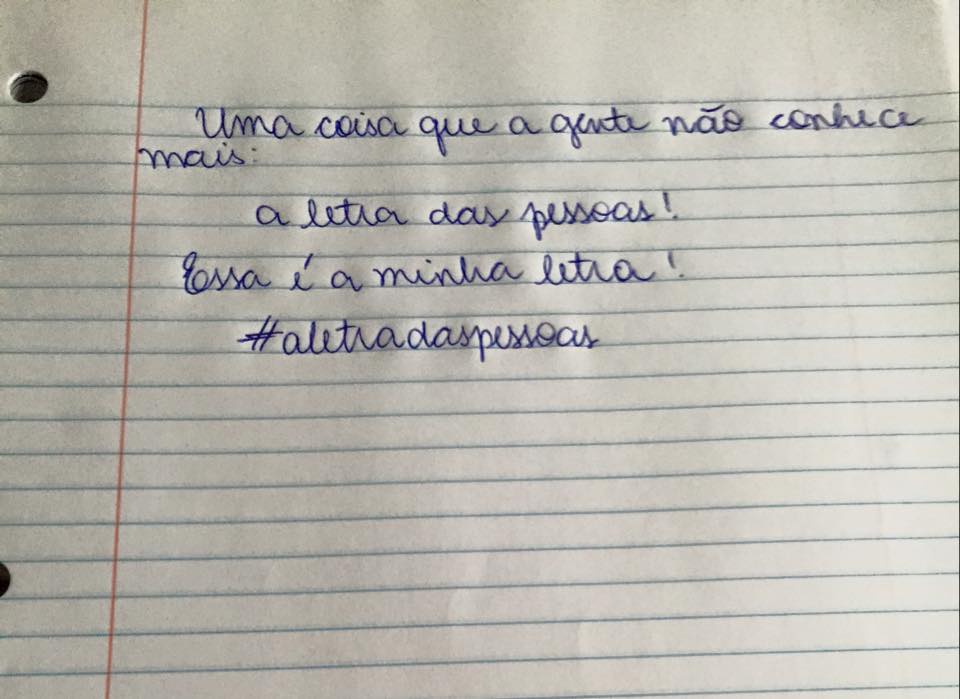 Uma coisa que a gente não conhece
mais:
a letra das pessoas!
Essa é a minha letra!
#aletradaspessoas